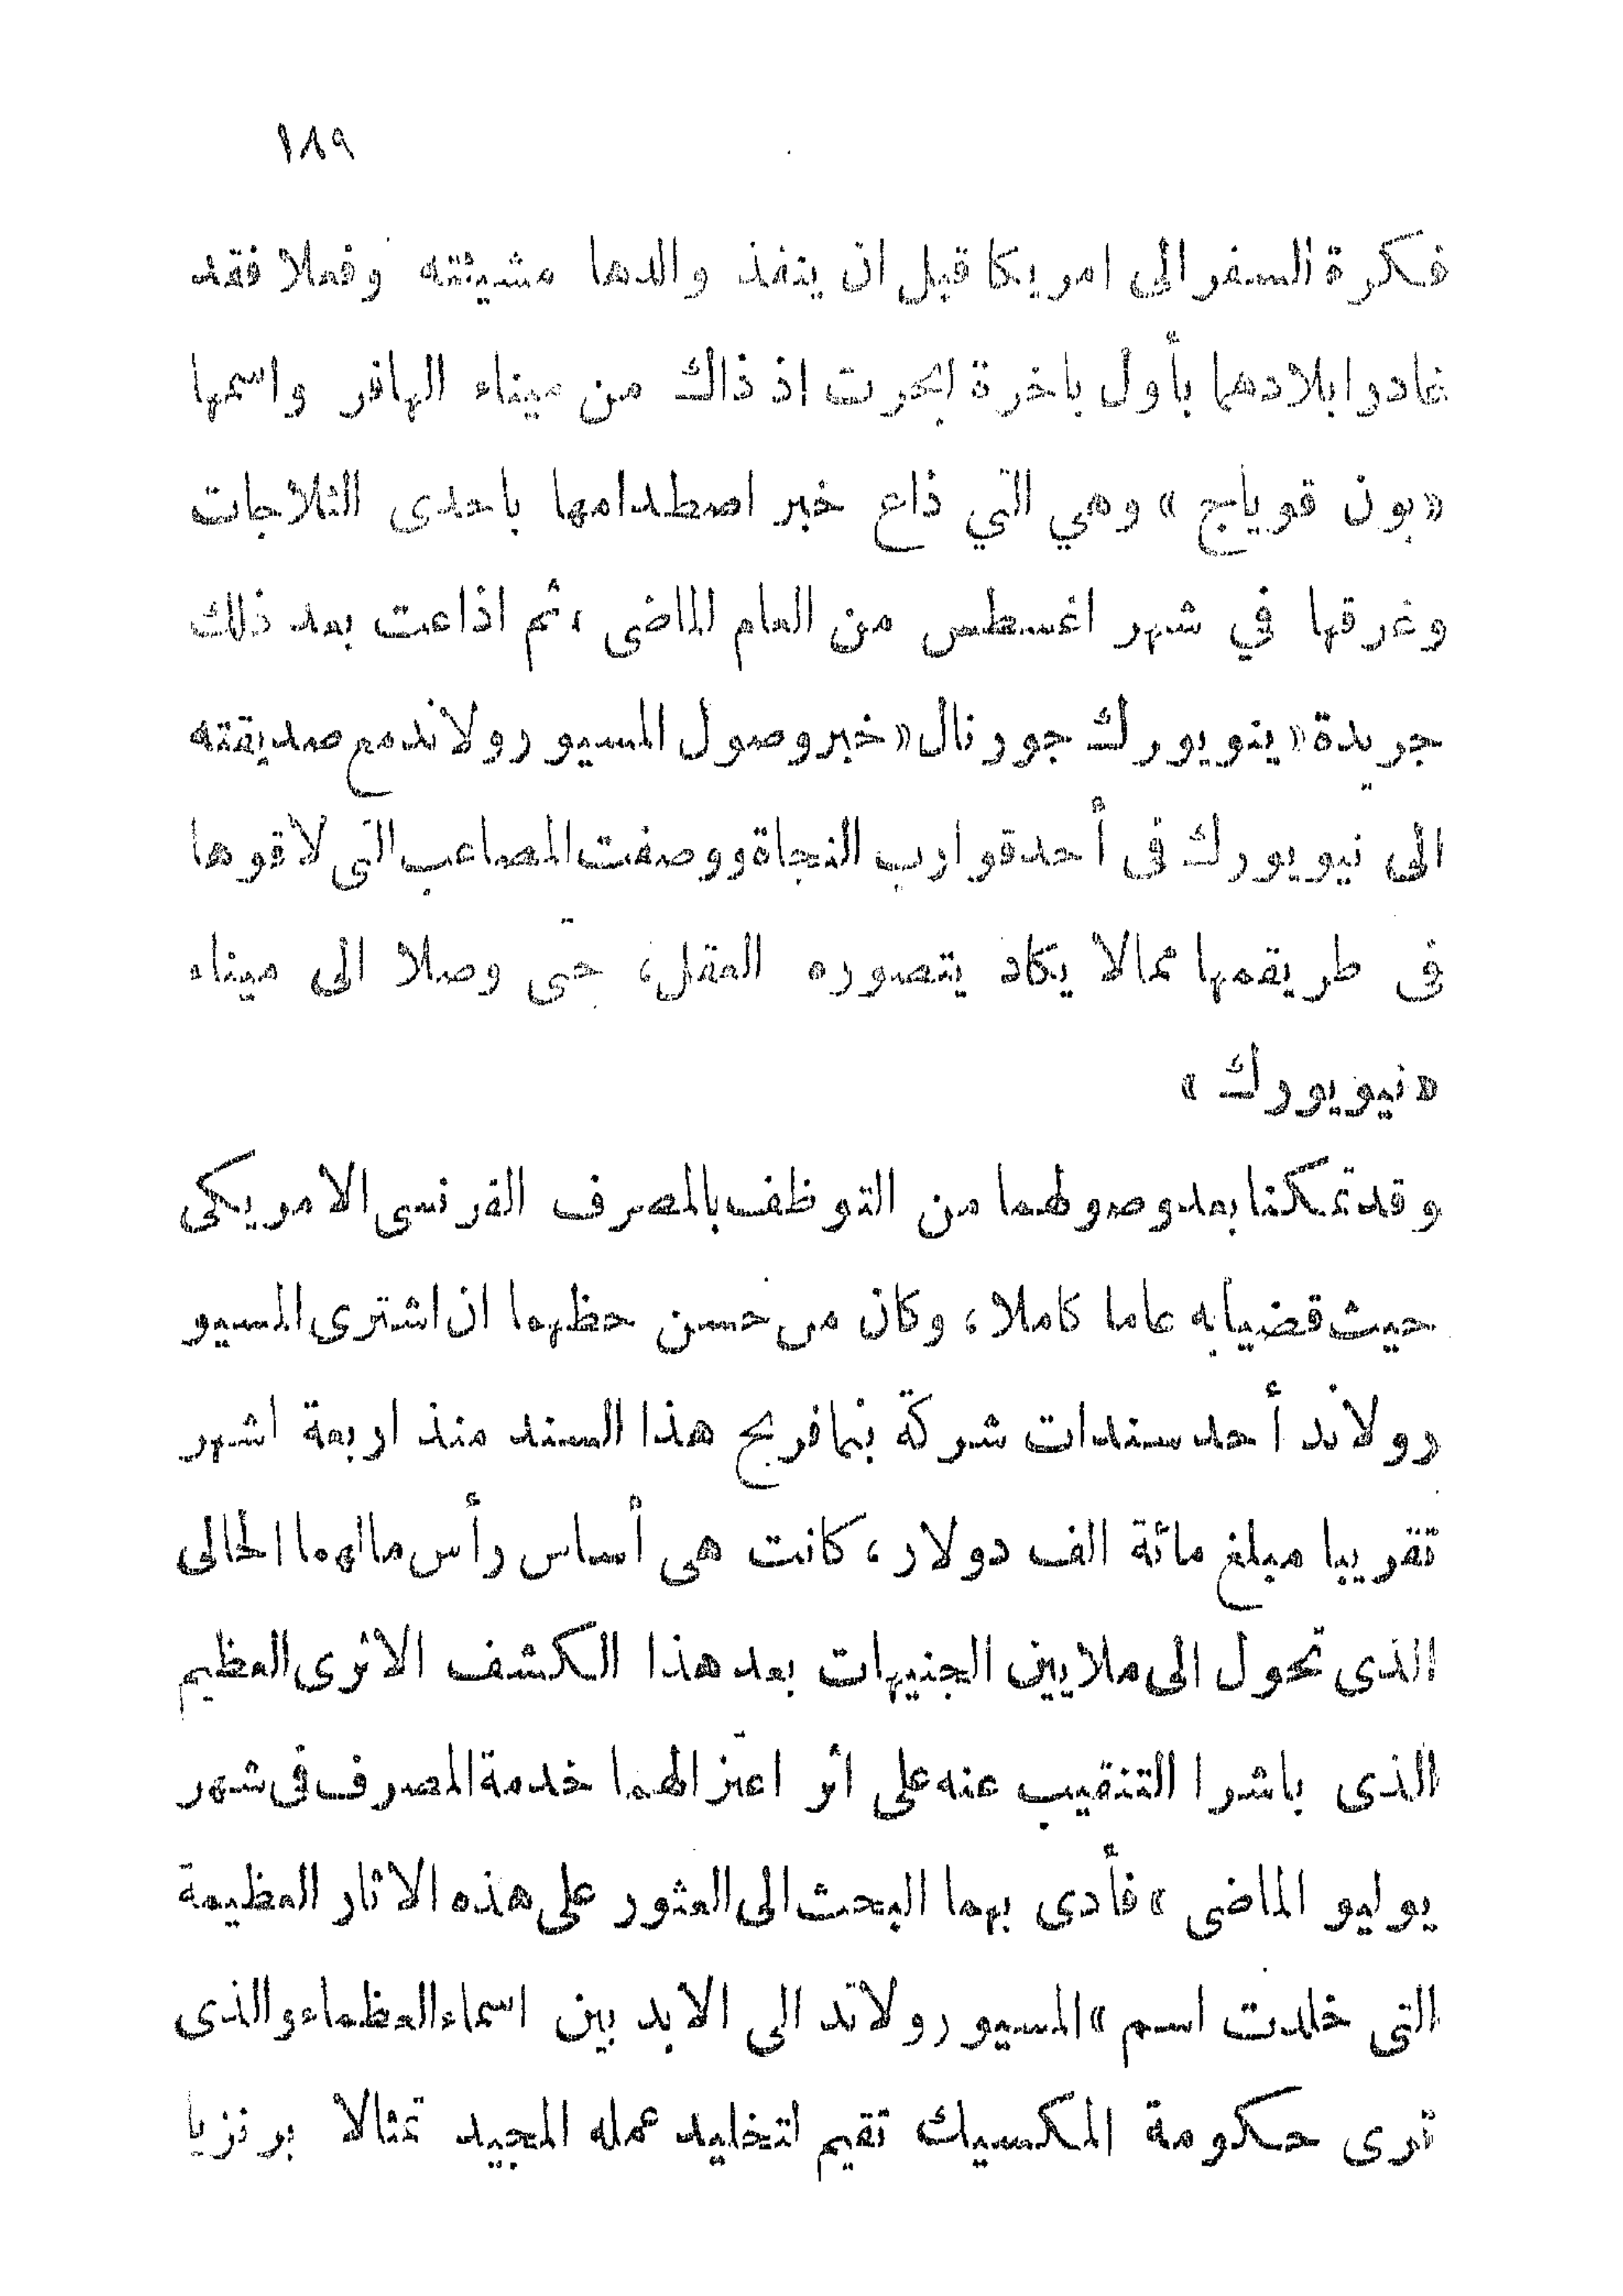 ١٨٩
فكرة السفر الى امريكا قبل ان ينفذ والدها مشيئته وفعلا فقد
غادوا بلادهما بأول باخرة ابحرت إذ ذاك من ميناء الهافر واسمها
«بون قوياج» وهي التي ذاع خبر اصطدامها باحدى الثلاجات
وغرقها في شهر اغسطس من العام الماضى ، ثم اذاعت بعد ذلك
جريدة «ينويورك جورنال» خبر وصول المسيو رولاند مع صديقته
الى نيويورك فى أحد قوارب النجاة ووصفت المصاعب التى لاقوها
فى طريقهما ممالا يكاد يتصوره العقل، حتى وصلا الى ميناء
«نيويورك»
وقد تمكنا بعد وصولهما من التوظف بالمصرف الفرنسى الامريكى
حيث قضيا به عاما كاملا، وكان من حسن حظهما ان اشترى المسيو
رولاند أحد سندات شركة بنما فربح هذا السند منذ اربعة اشهر
تقريبا مبلغ مائة الف دولار، كانت هى أساس رأس مالهما الحالى
الذى تحول الى ملايين الجنيهات بعد هذا الكشف الاثرى العظيم
الذى باشرا التنقيب عنه على اثر اعتزالهما خدمة المصرف فى شهر
يوليو الماضى » فأدى بهما البحث الى العثور على هذه الاثار العظيمة
التى خلدت اسم «المسيو رولاند الى الابد بين اسماء العظماء والذى
ترى حكومة المكسيك تقيم لتخليد عمله المجيد تمثالا برنزيا